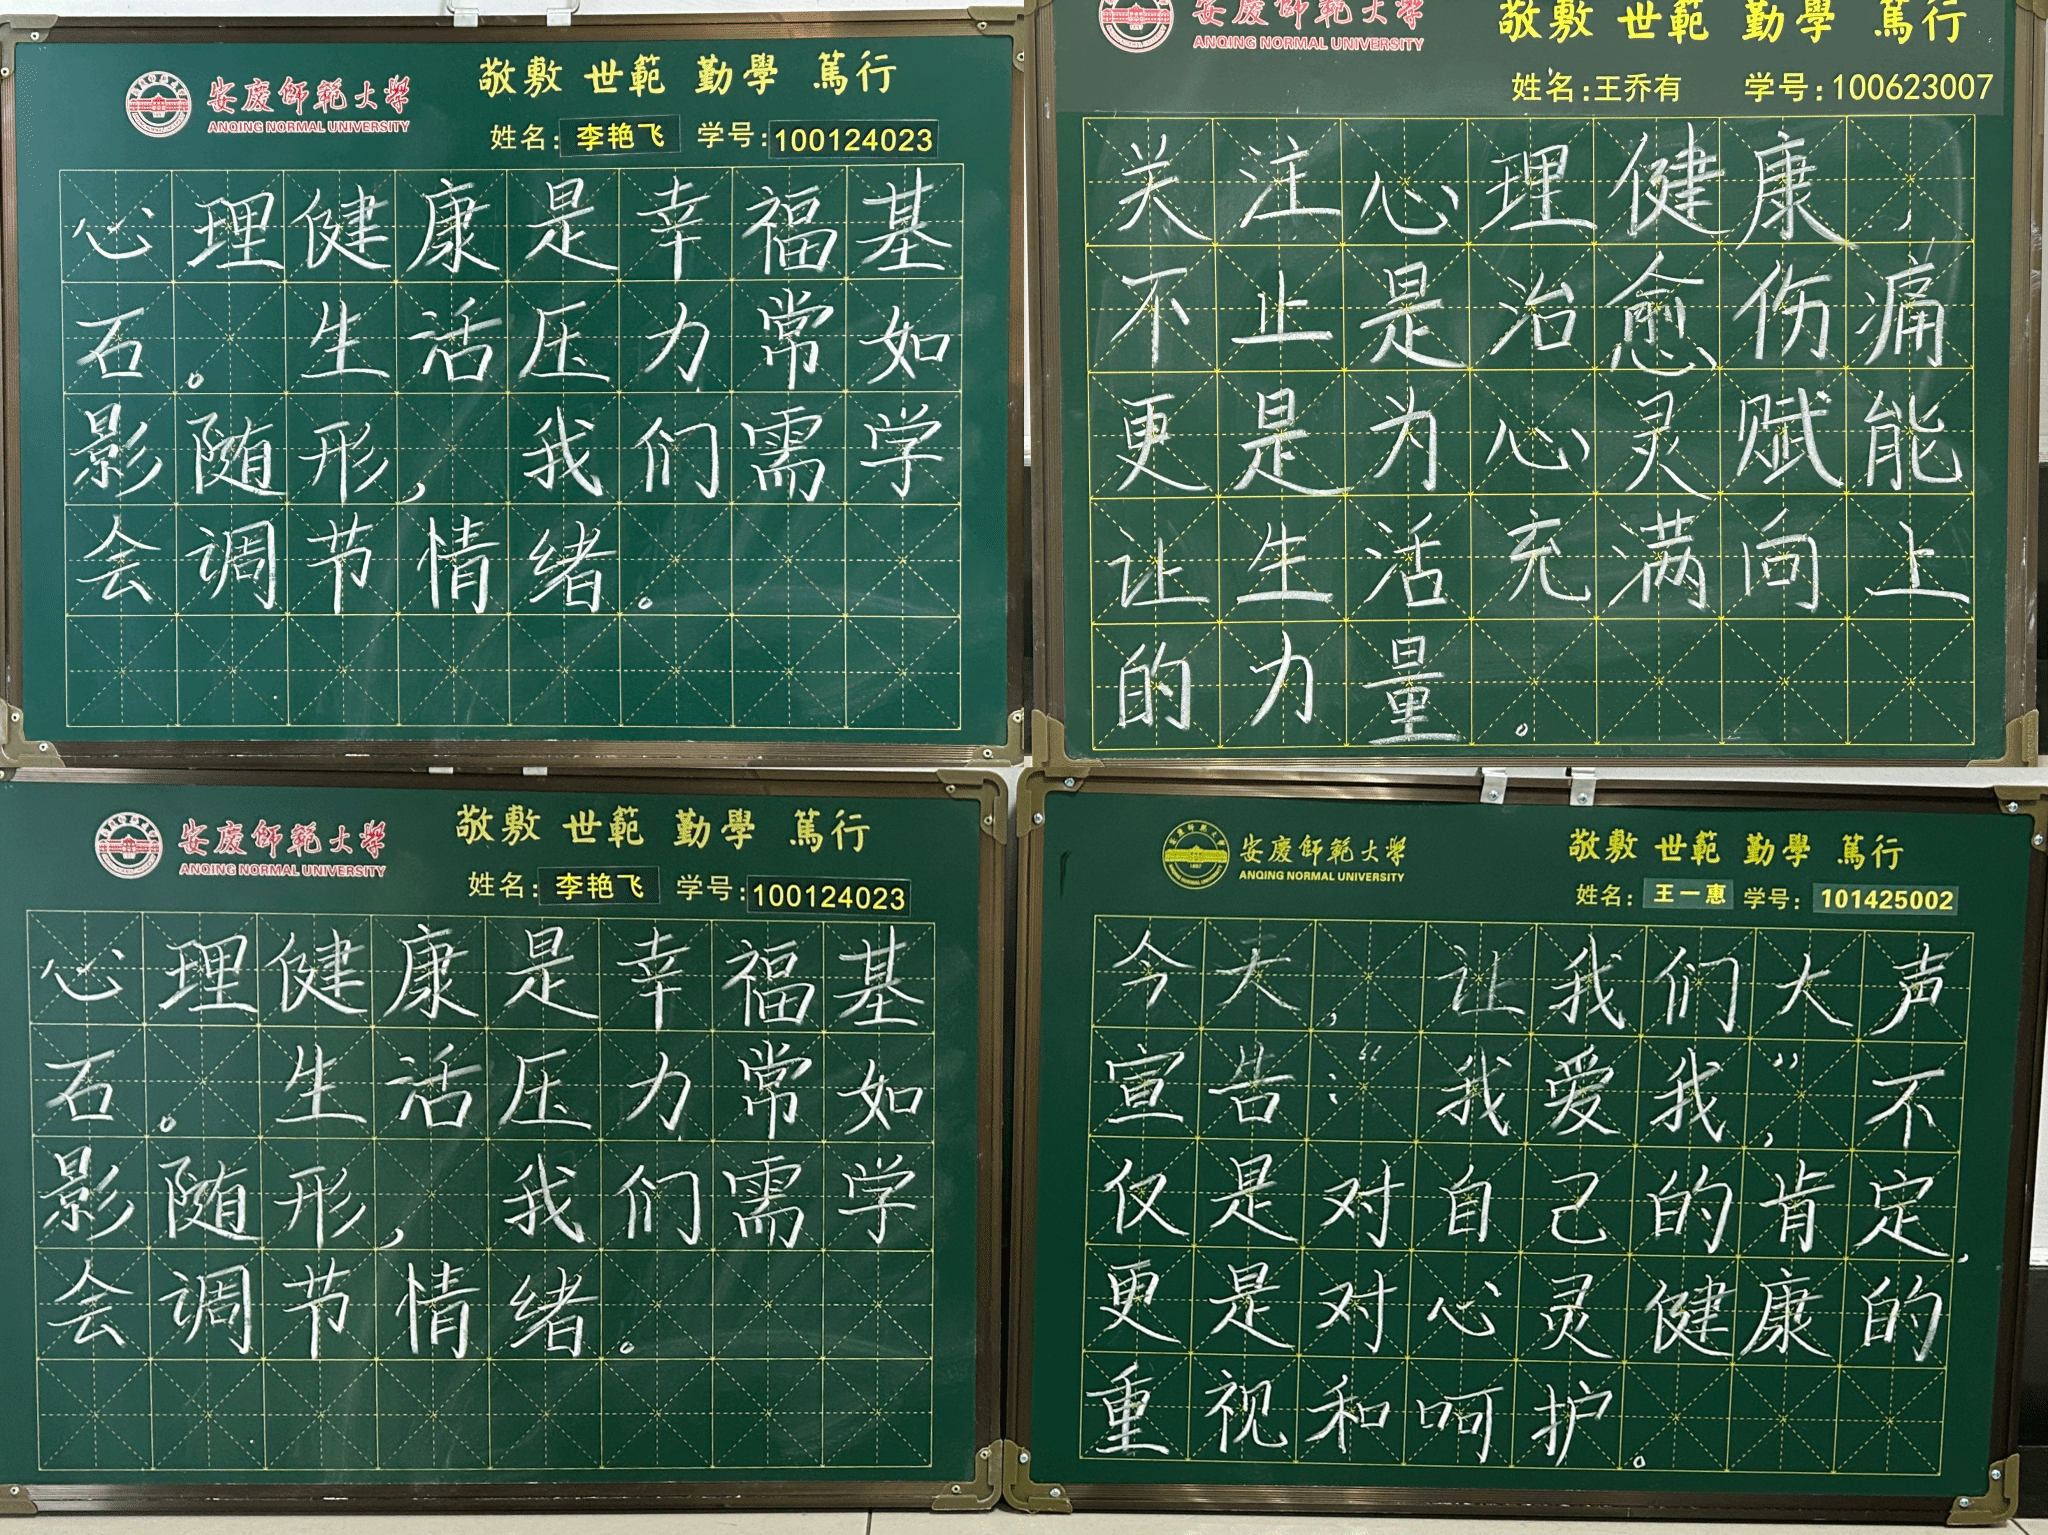 安慶師範大學
ANQING NORMAL UNIVERSITY
敬敷 世範 勤學 篤行
姓名: 李艳飞 学号: 100124023
心理健康是幸福基
石。生活压力常如
影随形，我们需学
会调节情绪。
安慶師範大學
ANQING NORMAL UNIVERSITY
敬敷 世範 勤學 篤行
姓名:王乔有 学号:100623007
关注心理健康，
不止是治愈伤痛
更是为心灵赋能
让生活充满向上
的力量。
安慶師範大學
ANQING NORMAL UNIVERSITY
敬敷 世範 勤學 篤行
姓名: 李艳飞 学号: 100124023
心理健康是幸福基
石。生活压力常如
影随形，我们需学
会调节情绪。
安慶師範大學
ANQING NORMAL UNIVERSITY
敬敷 世範 勤學 篤行
姓名: 王一惠 学号: 101425002
今天，让我们大声
宣告：“我爱我”，不
仅是对自己的肯定，
更是对心灵健康的
重视和呵护。